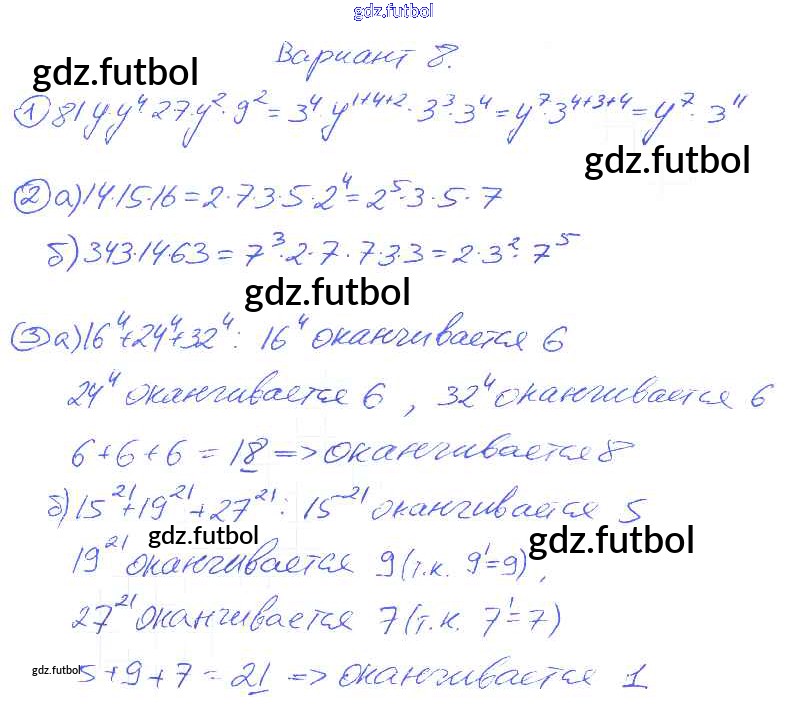 gdz.futbol
Вариант 8.
gdz.futbol
① 81y·y⁴·27·y²·9² = 3⁴·y¹⁺⁴⁺²·3³·3⁴ = y⁷·3⁴⁺³⁺⁴ = y⁷·3¹¹
gdz.futbol
② а) 14·15·16 = 2·7·3·5·2⁴ = 2⁵·3·5·7
б) 343·14·63 = 7³·2·7·7·3·3 = 2·3²·7⁵
gdz.futbol
③ а) 16⁴+24⁴+32⁴: 16⁴ оканчивается 6
24⁴ оканчивается 6, 32⁴ оканчивается 6
6+6+6 = 18 => оканчивается 8
б) 15²¹+19²¹+27²¹: 15²¹ оканчивается 5
gdz.futbol gdz.futbol
19²¹ оканчивается 9 (т.к. 9¹=9),
27²¹ оканчивается 7 (т.к. 7¹=7)
gdz.futbol
5+9+7 = 21 => оканчивается 1